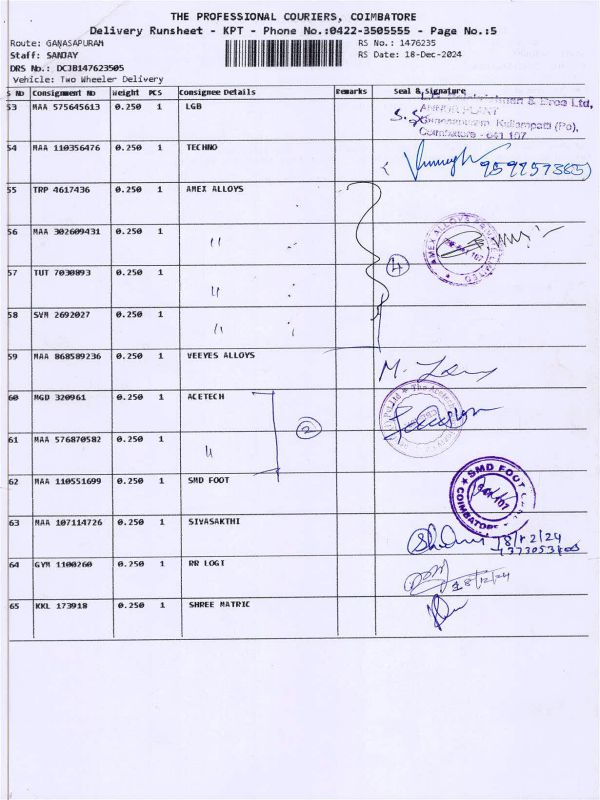 THE PROFESSIONAL COURIERS, COIMBATORE
Delivery Runsheet - KPT - Phone No.:0422-3505555 - Page No.:5
Route: GANASAPURAM RS No.: 1476235
Staff: SANJAY RS Date: 18-Dec-2024
DRS No.: DCJB147623505
Vehicle: Two Wheeler Delivery
S No Consignment No Weight PCS Consignee Details Remarks Seal & Signature
53 MAA 575645613 0.250 1 LGB
& Bros Ltd,
ANNUR PLANT
Ganesapuram, Kallampatti (Po),
Coimbatore - 641 107
54 MAA 110356476 0.250 1 TECHNO
55 TRP 4617436 0.250 1 AMEX ALLOYS
56 MAA 302609431 0.250 1 〃
AMEX ALLOYS PRIVATE LIMITED
57 TUT 7030893 0.250 1 〃 4
58 SVM 2692027 0.250 1 〃
59 MAA 868589236 0.250 1 VEEYES ALLOYS
60 MGD 320961 0.250 1 ACETECH 2
61 MAA 576870582 0.250 1 〃
62 MAA 110551699 0.250 1 SMD FOOT
SMD FOOT
COIMBATORE
63 MAA 107114726 0.250 1 SIVASAKTHI
18/12/24
64 GYM 1100260 0.250 1 RR LOGI
18/12/24
65 KKL 173918 0.250 1 SHREE MATRIC